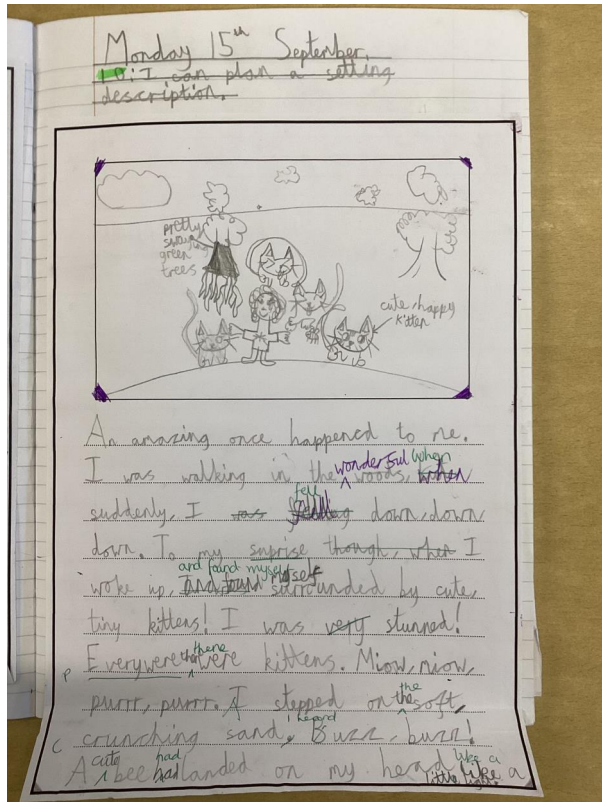 Monday 15th September.
LO: I can plan a setting
description.
pretty
swaying
green
trees
cute, happy
kitten
An amazing once happened to me.
I was walking in the wonderful woods, when
suddenly, I fell down, down
down. To my suprise though, when I
woke up, and found myself surrounded by cute,
tiny kittens! I was very stunned!
Everywere there were kittens. Miow, miow,
P
purrr, purrr. I stepped on the soft,
crunching sand, I heard Buzz, buzz!
C
A cute bee had landed on my head like a